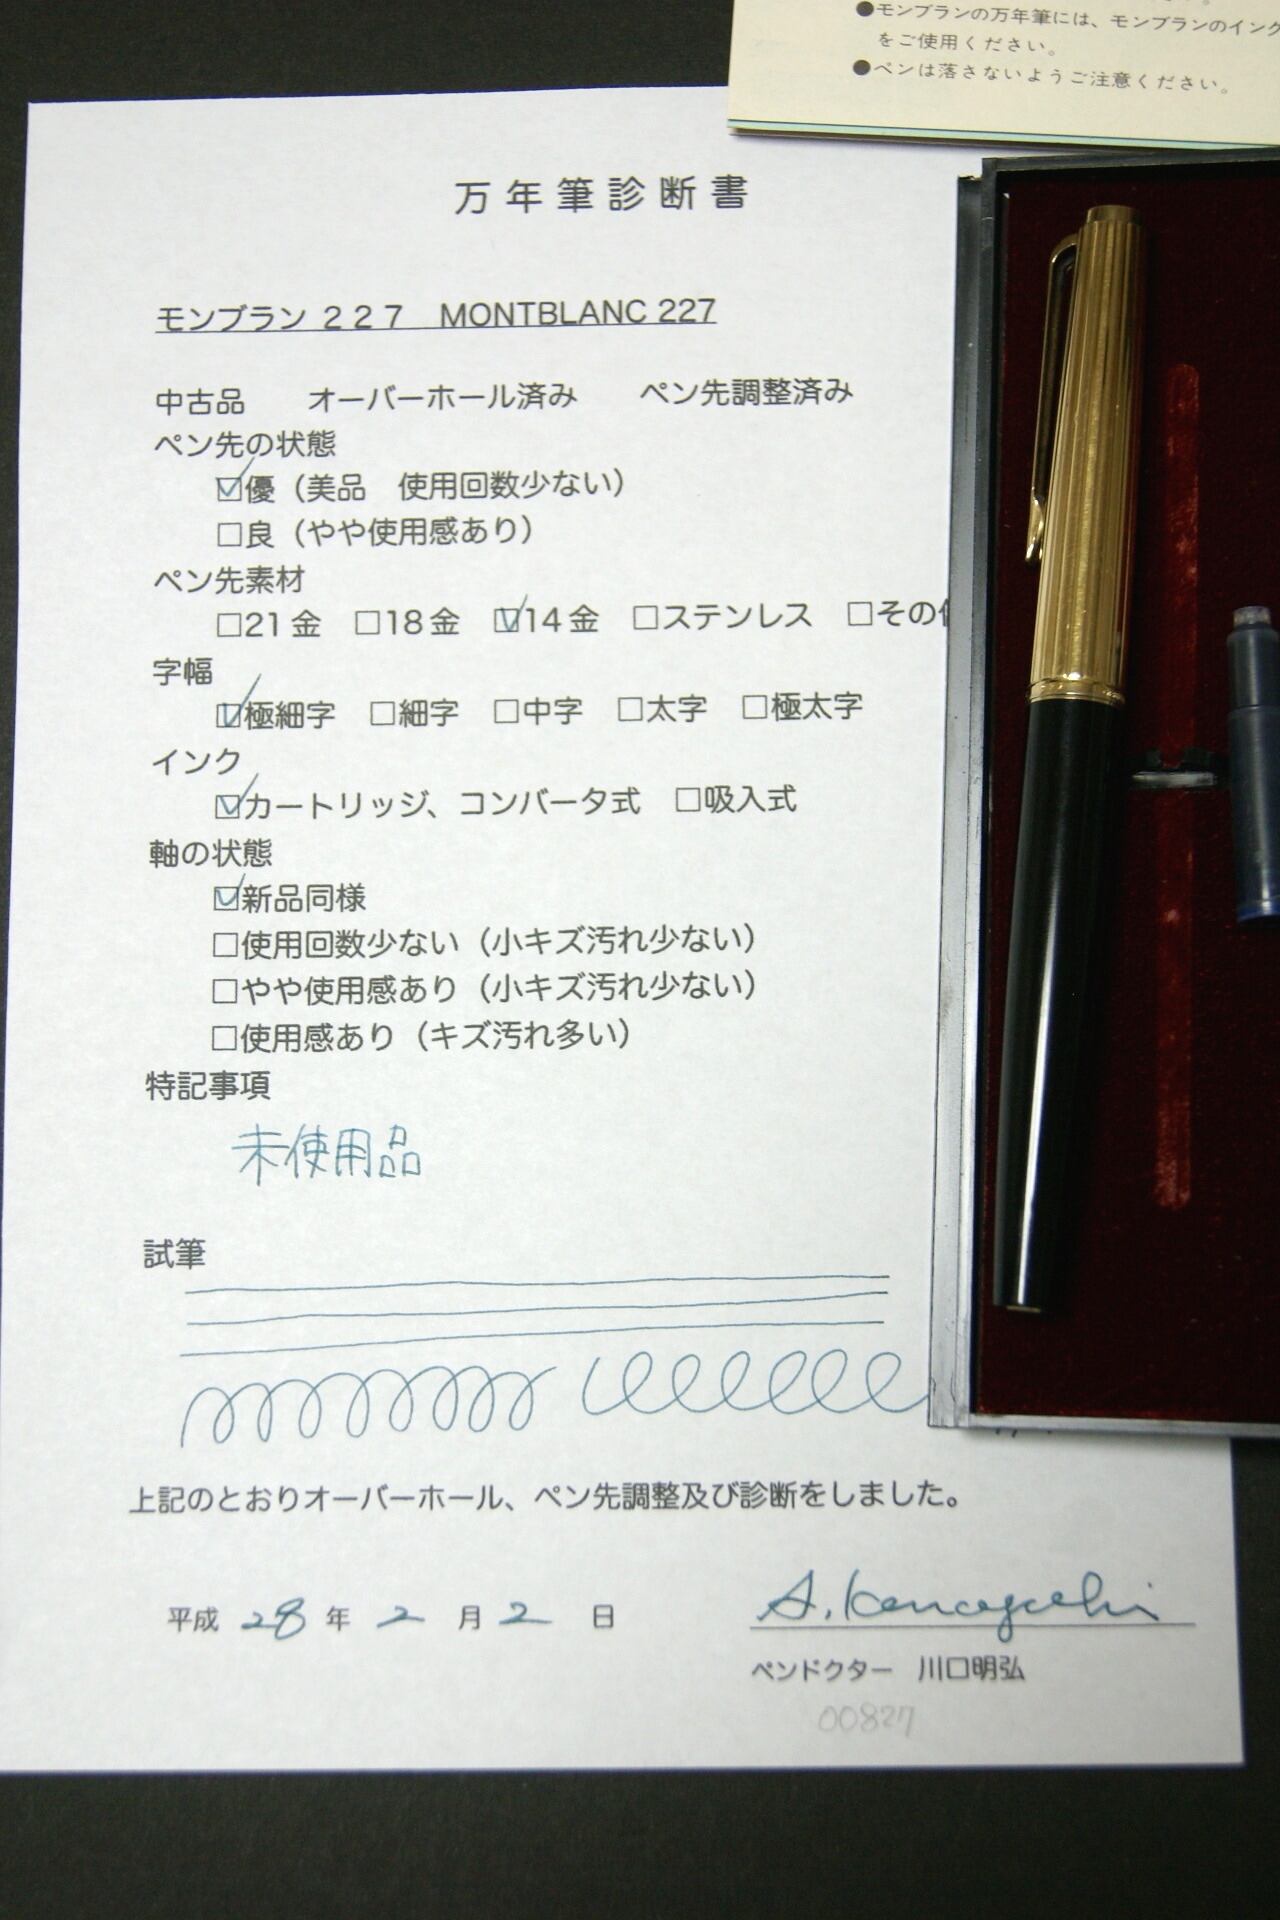 ●モンブランの万年筆には、モンブランのインク
をご使用ください。
●ペンは落さないようご注意ください。
万年筆診断書
モンブラン 227 MONTBLANC 227
中古品 オーバーホール済み ペン先調整済み
ペン先の状態
☑優（美品 使用回数少ない）
□良（やや使用感あり）
ペン先素材
□21金 □18金 ☑14金 □ステンレス □その
字幅
☑極細字 □細字 □中字 □太字 □極太字
インク
☑カートリッジ、コンバータ式 □吸入式
軸の状態
☑新品同様
□使用回数少ない（小キズ汚れ少ない）
□やや使用感あり（小キズ汚れ少ない）
□使用感あり（キズ汚れ多い）
特記事項
未使用品
試筆
上記のとおりオーバーホール、ペン先調整及び診断をしました。
平成 28 年 2 月 2 日
A. Kawaguchi
ペンドクター 川口明弘
00827